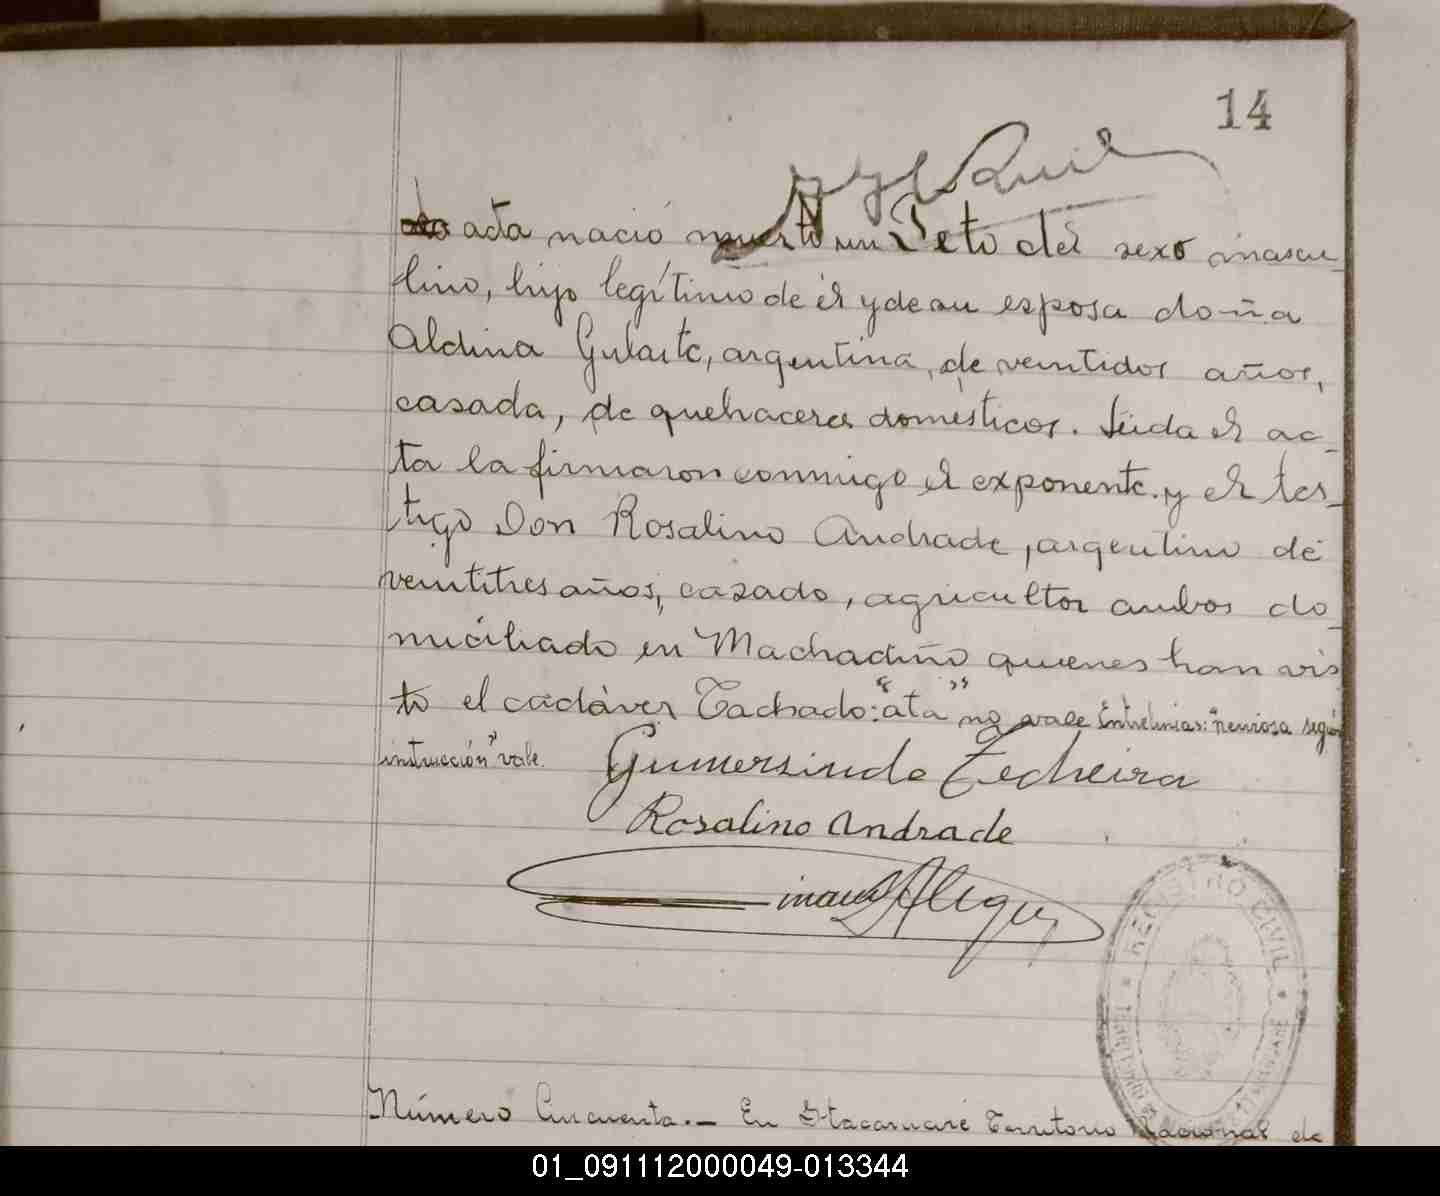 14
acta nació muerto un Feto del sexo mascu_
lino, hijo legítimo de él y de su esposa doña
Aldina Gularte, argentina, de veintidos años,
casada, de quehaceres domésticos. Leida el ac_
ta la firmaron conmigo el exponente y el tes_
tigo Don Rosalino Andrade, argentino de
veintitres años, casado, agricultor ambos do_
miciliado en Machadiño quienes han vis
to el cadáver Tachado: "ata" no vale Entrelinias: "nerviosa según
instrucción" vale.
Gumersindo Techeira
Rosalino Andrade
REGISTRO CIVIL
Número Cincuenta.— En Itacaruaré Territorio Nacional de
01_091112000049-013344